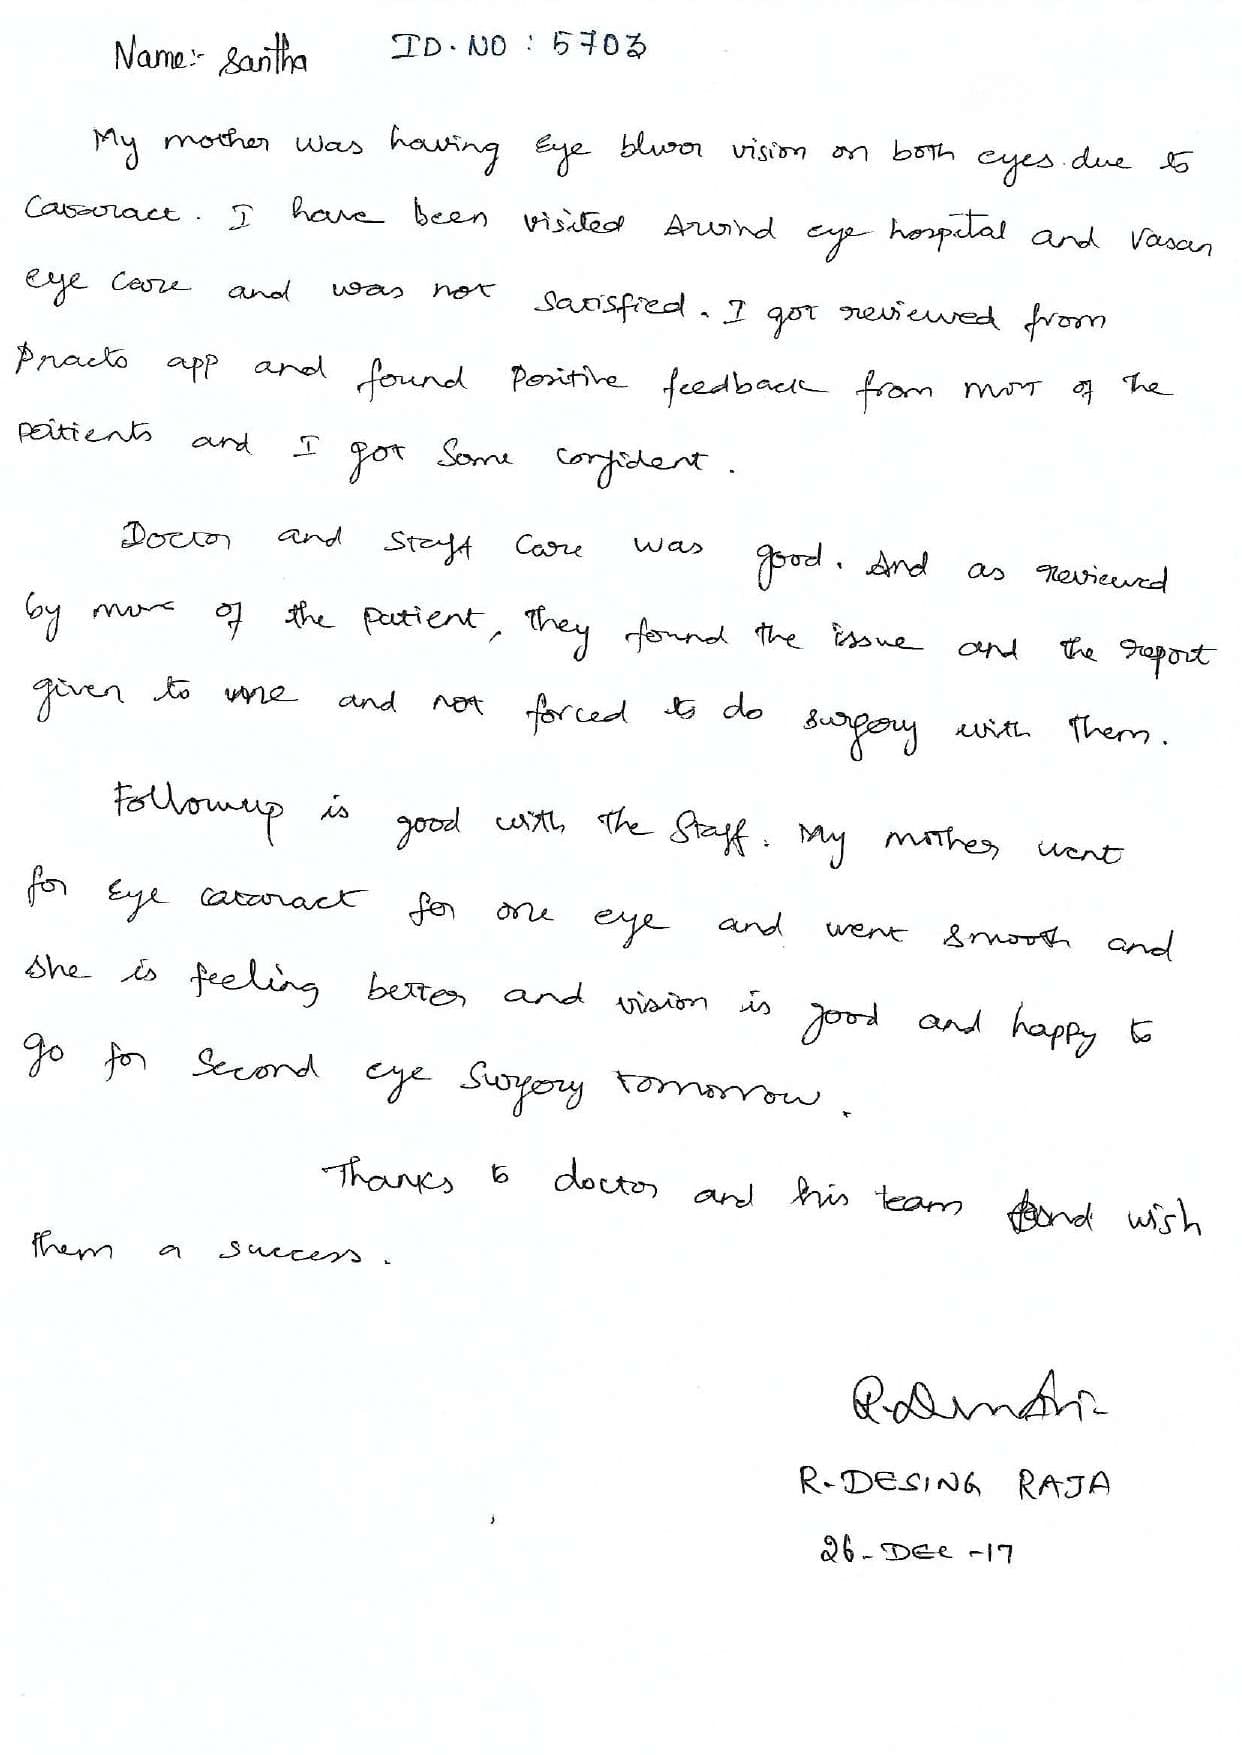 Name:- Santha ID.NO : 5703
My mother was having Eye bluor vision on both eyes due to
Cataract. I have been visited Arvind eye hospital and Vasan
eye care and was not satisfied. I got reviewed from
Practo app and found Positive feedback from most of the
patients and I got Some confident.
Doctor and Staff Care was good. And as reviewed
by most of the patient, they found the issue and the report
given to me and not forced to do surgery with them.
Followup is good with the Staff. My mother went
for Eye cataract for one eye and went smooth and
she is feeling better and vision is good and happy to
go for Second eye Surgery tomorrow.
Thanks to doctor and his team and wish
them a success.
R.DESING RAJA
26-DEC-17